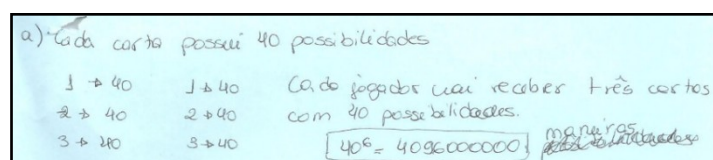 a) Cada carta possui 40 possibilidades
1 → 40 1 → 40 Cada jogador vai receber três cartas
2 → 40 2 → 40 com 40 possibilidades.
3 → 40 3 → 40 40⁶ = 4096000000 maneiras